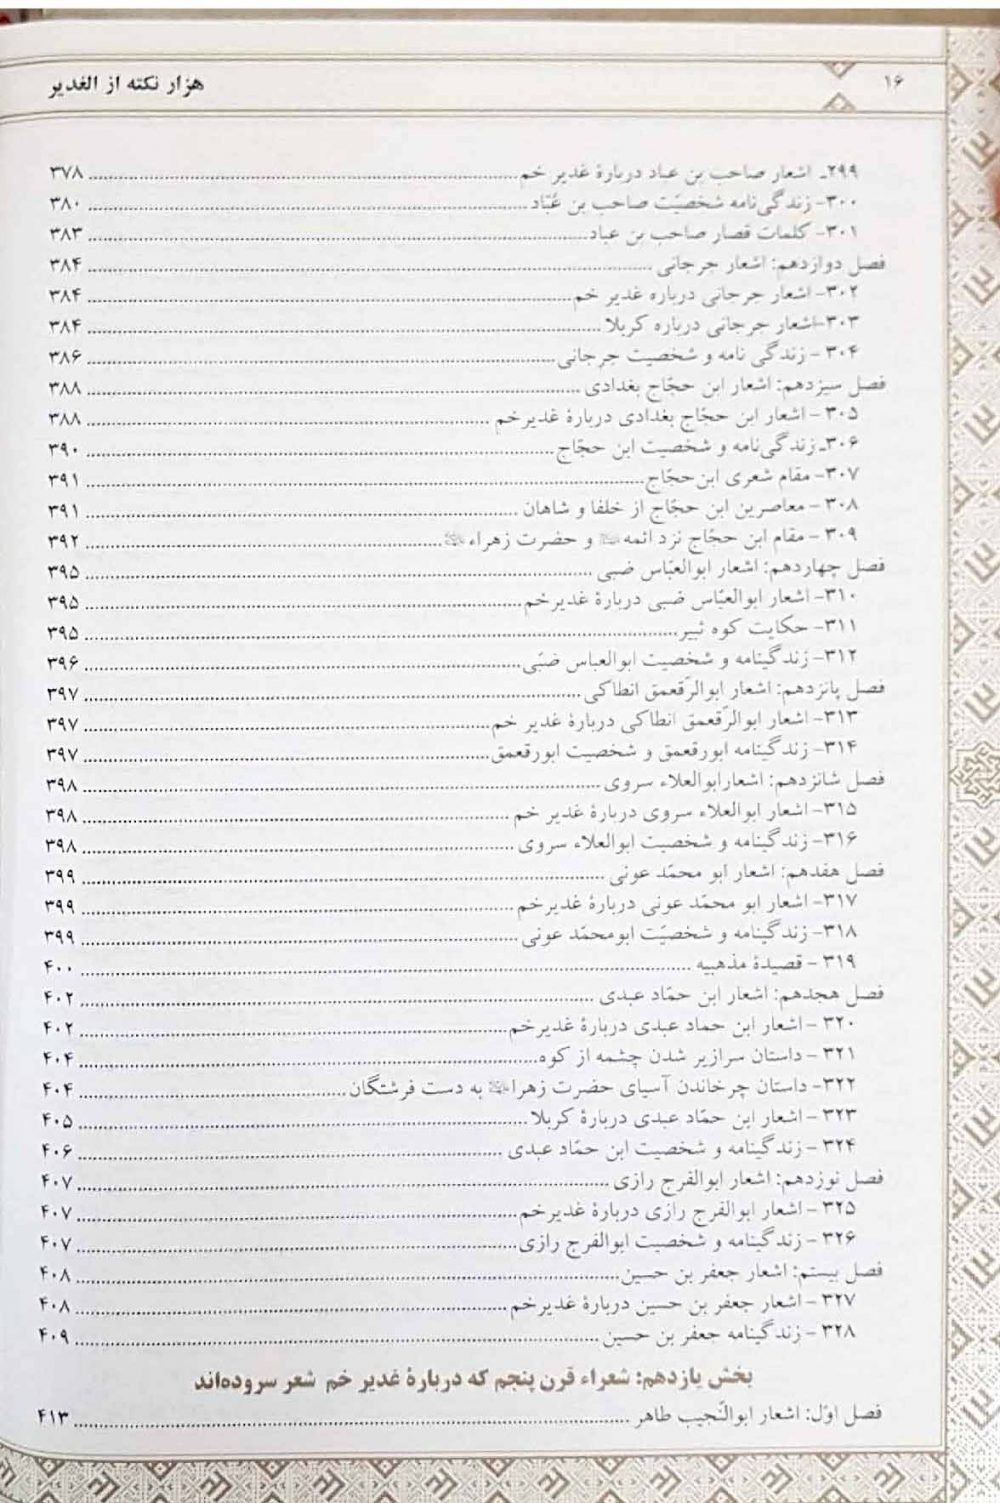 ۱۶
هزار نکته از الغدیر
۲۹۹ـ اشعار صاحب بن عباد دربارهٔ غدیر خم ........ ۳۷۸
۳۰۰- زندگی‌نامه شخصیّت صاحب بن عُبّاد ........ ۳۸۰
۳۰۱- کلمات قصار صاحب بن عباد ........ ۳۸۳
فصل دوازدهم: اشعار جرجانی ........ ۳۸۴
۳۰۲- اشعار جرجانی درباره غدیر خم ........ ۳۸۴
۳۰۳-اشعار جرجانی درباره کربلا ........ ۳۸۴
۳۰۴ - زندگی نامه و شخصیت جرجانی ........ ۳۸۶
فصل سیزدهم: اشعار ابن حجّاج بغدادی ........ ۳۸۸
۳۰۵ - اشعار ابن حجّاج بغدادی دربارهٔ غدیرخم ........ ۳۸۸
۳۰۶ـ زندگی‌نامه و شخصیت ابن حجّاج ........ ۳۹۰
۳۰۷- مقام شعری ابن‌حجّاج ........ ۳۹۱
۳۰۸ - معاصرین ابن حجّاج از خلفا و شاهان ........ ۳۹۱
۳۰۹ - مقام ابن حجّاج نزد ائمه و حضرت زهراء ........ ۳۹۲
فصل چهاردهم: اشعار ابوالعبّاس ضبی ........ ۳۹۵
۳۱۰- اشعار ابوالعبّاس ضبی دربارهٔ غدیرخم ........ ۳۹۵
۳۱۱- حکایت کوه ثبیر ........ ۳۹۵
۳۱۲- زندگینامه و شخصیت ابوالعباس ضبّی ........ ۳۹۶
فصل پانزدهم: اشعار ابوالرّقعمق انطاکی ........ ۳۹۷
۳۱۳- اشعار ابوالرّقعمق انطاکی دربارهٔ غدیر خم ........ ۳۹۷
۳۱۴- زندگینامه ابورقعمق و شخصیت ابورقعمق ........ ۳۹۷
فصل شانزدهم: اشعارابوالعلاء سروی ........ ۳۹۸
۳۱۵- اشعار ابوالعلاء سروی دربارهٔ غدیر خم ........ ۳۹۸
۳۱۶- زندگینامه و شخصیت ابوالعلاء سروی ........ ۳۹۸
فصل هفدهم: اشعار ابو محمّد عونی ........ ۳۹۹
۳۱۷- اشعار ابو محمّد عونی دربارهٔ غدیرخم ........ ۳۹۹
۳۱۸- زندگینامه و شخصیّت ابومحمّد عونی ........ ۳۹۹
۳۱۹ - قصیدهٔ مذهبیه ........ ۴۰۰
فصل هجدهم: اشعار ابن حمّاد عبدی ........ ۴۰۲
۳۲۰ - اشعار ابن حماد عبدی دربارهٔ غدیرخم ........ ۴۰۲
۳۲۱ - داستان سرازیر شدن چشمه از کوه ........ ۴۰۴
۳۲۲- داستان چرخاندن آسیای حضرت زهرا به دست فرشتگان ........ ۴۰۴
۳۲۳ - اشعار ابن حمّاد عبدی دربارهٔ کربلا ........ ۴۰۵
۳۲۴ - زندگینامه و شخصیت ابن حمّاد عبدی ........ ۴۰۶
فصل نوزدهم: اشعار ابوالفرج رازی ........ ۴۰۷
۳۲۵ - اشعار ابوالفرج رازی دربارهٔ غدیرخم ........ ۴۰۷
۳۲۶ - زندگینامه و شخصیت ابوالفرج رازی ........ ۴۰۷
فصل بیستم: اشعار جعفر بن حسین ........ ۴۰۸
۳۲۷ - اشعار جعفر بن حسین دربارهٔ غدیرخم ........ ۴۰۸
۳۲۸ - زندگینامه جعفر بن حسین ........ ۴۰۹
بخش یازدهم: شعراء قرن پنجم که دربارهٔ غدیر خم شعر سروده‌اند
فصل اوّل: اشعار ابوالنّجیب طاهر ........ ۴۱۳